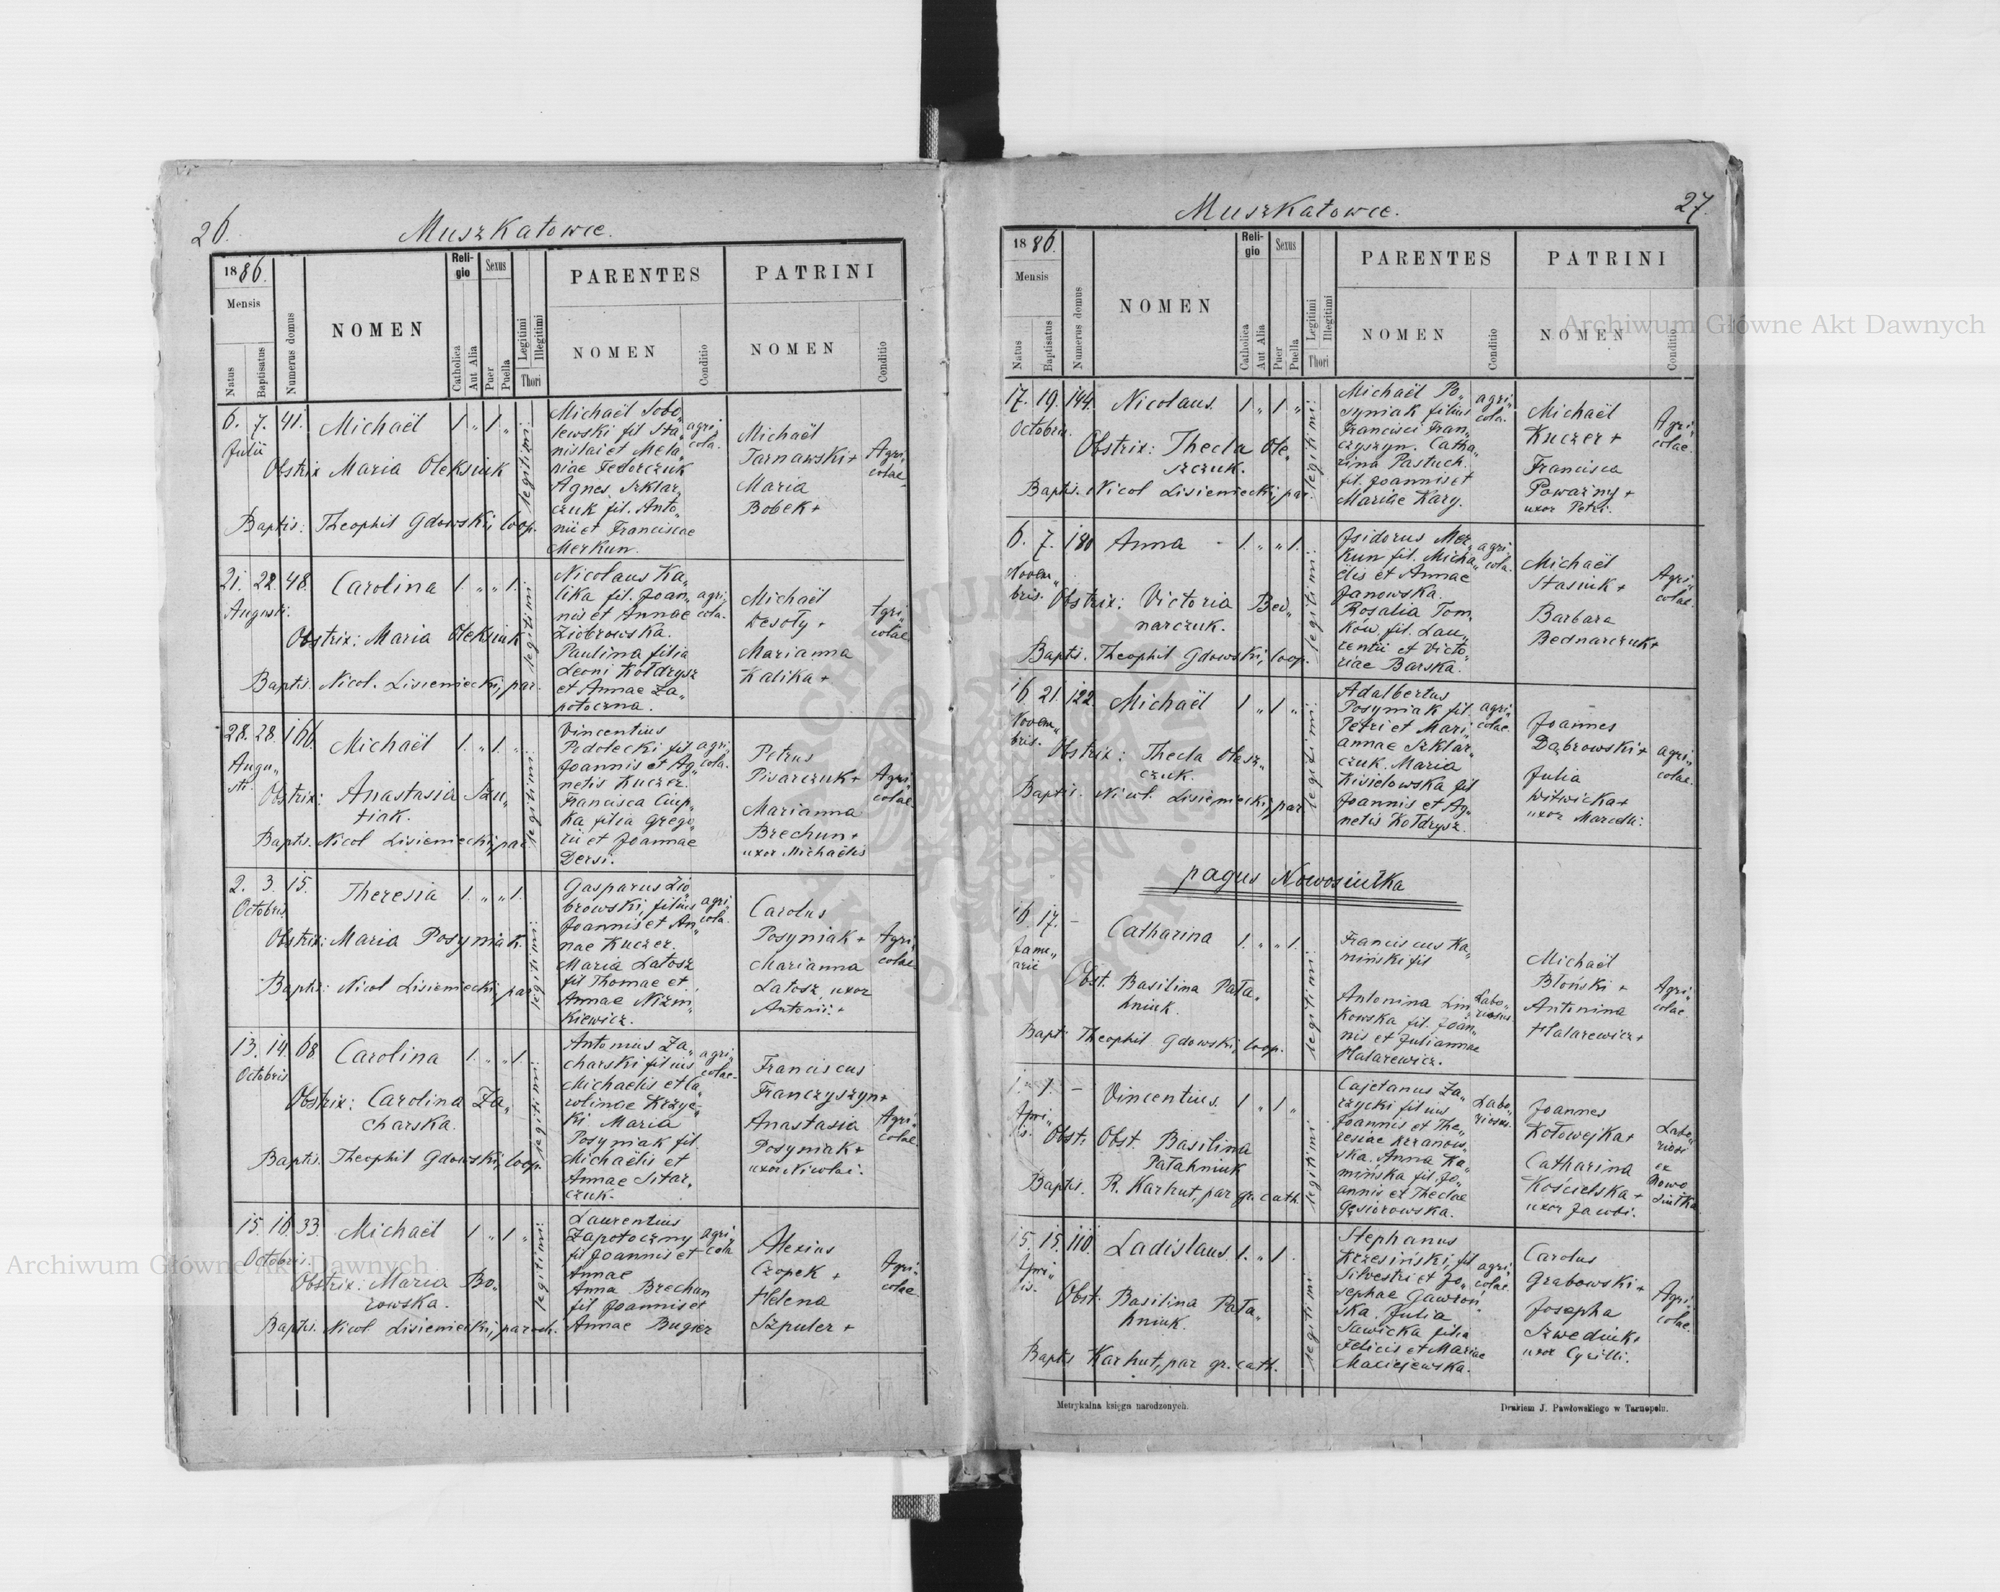 26.
Muszkatowce.
1886.
Mensis
Natus
Baptisatus
Numerus domus
NOMEN
Religio
Catholica
Aut Alia
Sexus
Puer
Puella
Legitimi
Illegitimi
Thori
PARENTES
NOMEN
Conditio
PATRINI
NOMEN
Conditio
6. 7. 41. Michaël 1 „ 1 „
Julii
Obstrix Maria Oleksiuk
Baptis: Theophil Gdowski, coop.
legitimi
Michaël Sobo„
lewski fil Sta„
nislai et Mela„
niae Fedorczuk
Agnes Szklar„
czuk fil. Anto„
nii et Franciscae
Merkun.
agri„
cola.
Michaël
Tarnawski +
Maria
Bobek +
Agri„
colae
21. 22 48. Carolina 1. „ „ 1.
Augusti.
Obstrix: Maria Oleksiuk
Baptis. Nicol. Lisieniecki, par.
legitimi
Nicolaus Ka„
lika fil. Joan„
nis et Annae
Ziobrowska.
Paulina filia
Leoni Kołdrysz
et Annae Za„
potoczna.
agri„
cola.
Michaël
Wesoły +
Marianna
Kalika +
Agri„
colae
28. 28. 166. Michaël 1. „ 1. „
Augu„
sti.
Obstrix: Anastasia Szu„
tiak.
Baptis. Nicol Lisieniecki, par
legitimi
Vincentius
Podolecki fil
Joannis et Ag„
netis Kuczer.
Francisca Ciup„
ka filia Grego„
rii et Joannae
Dersi.
agri„
cola.
Petrus
Pisarczuk +
Marianna
Brechun +
uxor Michaëlis
Agri„
colae
2. 3. 15. Theresia 1. „ „ 1.
Octobris
Obstrix: Maria Posyniak.
Baptis: Nicol Lisieniecki, par
legitimi
Gasparus Zio„
browski, filius
Joannis et An„
nae Kuczer.
Maria Latosz
fil Thomae et
Annae Nizin„
kiewicz.
agri„
cola.
Carolus
Posyniak +
Marianna
Latosz, uxor
Antonii. +
Agri„
colae
13. 14. 68 Carolina 1. „ „ 1.
Octobris
Obstrix: Carolina Za„
charska.
Baptis. Theophil Gdowski, coop.
legitimi
Antonius Za„
charski filius
Michaëlis et Ca„
rolinae Krzyc„
ki Maria
Posyniak fil.
Michaëlis et
Annae Sitar„
czuk.
agri„
colae.
Franciscus
Franczyszyn +
Anastasia
Posyniak +
uxor Nicolai.
Agri„
colae
15. 16. 33. Michaël 1 „ 1 „
Octobris.
Obstrix: Maria Bo„
rowska.
Baptis. Nicol Lisieniecki, paroch.
legitimi
Laurentius
Zapotoczny
fil Joannis et
Annae
Anna Brechun
fil Joannis et
Annae Bugier
agri„
cola
Alexius
Czopek +
Helena
Szpuler +
Agri„
colae
Muszkatowce.
27.
1886.
Mensis
Natus
Baptisatus
Numerus domus
NOMEN
Religio
Catholica
Aut Alia
Sexus
Puer
Puella
Legitimi
Illegitimi
Thori
PARENTES
NOMEN
Conditio
PATRINI
NOMEN
Conditio
17. 19. 144. Nicolaus. 1 „ 1 „
Octobris.
Obstrix: Thecla Ole„
szczuk.
Baptis. Nicol Lisieniecki, par
legitimi
Michaël Po„
syniak filius
Francisci Fran„
czyszyn. Catha„
rina Pastuch.
fil. Joannis et
Mariae Kary.
agri„
cola.
Michaël
Kuczer +
Francisca
Poważny +
uxor Petri.
Agri„
colae.
6. 7. 180 Anna - 1. „ „ 1.
Novem„
bris.
Obstrix: Victoria Bed„
narczuk.
Baptis. Theophil Gdowski, coop.
legitimi
Isidorus Mer„
kun fil. Micha„
ëlis et Annae
Janowska.
Rosalia Tom„
ków, fil. Lau„
rentii et Victo„
riae Barska.
agri„
cola.
Michaël
Stasiuk +
Barbara
Bednarczuk +
Agri„
colae.
16. 21. 122. Michaël 1 „ 1 „
Novem„
bris.
Obstrix: Thecla Olesz„
czuk.
Baptis. Nicol. Lisieniecki, par.
legitimi
Adalbertus
Posyniak fil.
Petri et Mari„
annae Szklar„
czuk. Maria
Kisielowska fil
Joannis et Ag„
netis Kołdrysz.
agri„
colae.
Joannes
Dąbrowski +
Julia
Witwicka +
uxor Marcelli.
agri„
colae.
pagus Nowosiułka
16. 17. - Catharina 1. „ „ 1.
Janu„
arii
Obst. Basilina Pała„
hniuk.
Bapt. Theophil Gdowski, coop.
legitimi
Franciscus Ka„
miński fil
Antonina Lin„
kowska fil. Joan„
nis et Juliannae
Halarewicz.
Labo„
riosus
Michaël
Błoński +
Antonina
Halarewicz +
Agri„
colae.
1. 1. - Vincentius 1 „ 1 „
Apri„
lis.
Obst. Obst. Basilina
Pałahniuk
Baptis. R. Karhut, par gr. cath.
legitimi
Cajetanus Za„
rzycki filius
Joannis et The„
resiae Krzanow„
ska. Anna Ka„
mińska fil. Jo„
annis et Theclae
Gęsiorowska.
Labo„
riosus.
Joannes
Kołowejka +
Catharina
Kościelska +
uxor Jacobi.
Labo„
riosi
ex
Nowo
siułka
15. 15. 110. Ladislaus 1. „ 1
Apri„
lis.
Obst. Basilina Pała„
hniuk.
Baptis Karhut, par gr. cath.
legitimi
Stephanus
Krzesiński, fil
Silvestri et Jo„
sephae Gawroń„
ska. Julia
Sawicka filia
Felicis et Mariae
Maciejewska.
agri„
colae
Carolus
Grabowski +
Josepha
Szwediuk +
uxor Cyrilli.
Agri„
colae.
Metrykalna księga narodzonych.
Drukiem J. Pawłowskiego w Tarnopolu.
Archiwum Główne Akt Dawnych
Archiwum Główne Akt Dawnych